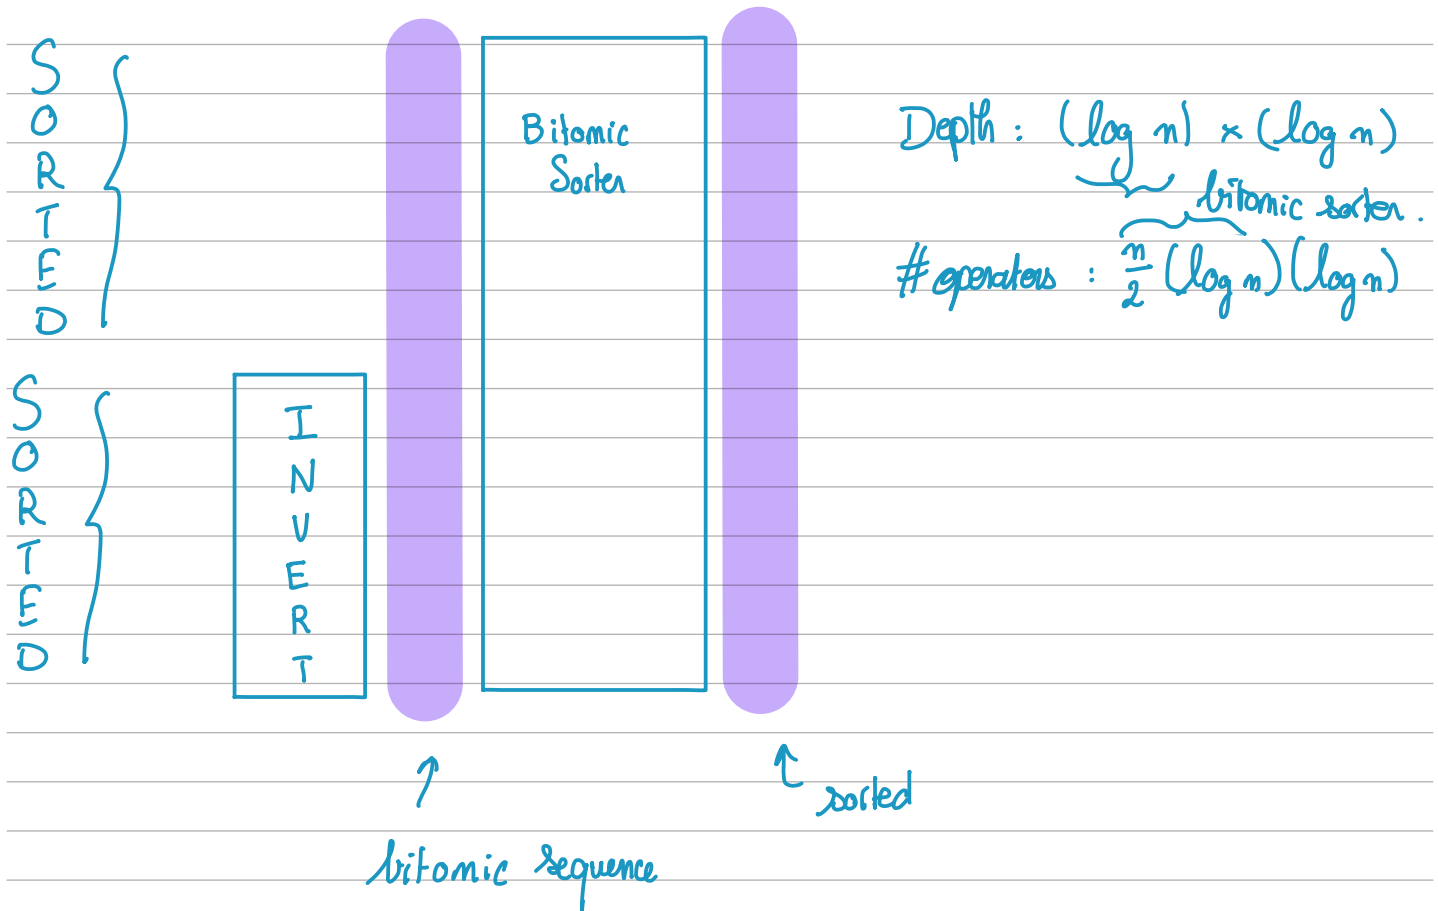 SORTED
SORTED
INVERT
Bitonic
Sorter
Depth : (log n) × (log n)
bitonic sorter.
# operators : n/2 (log n)(log n)
sorted
bitonic sequence